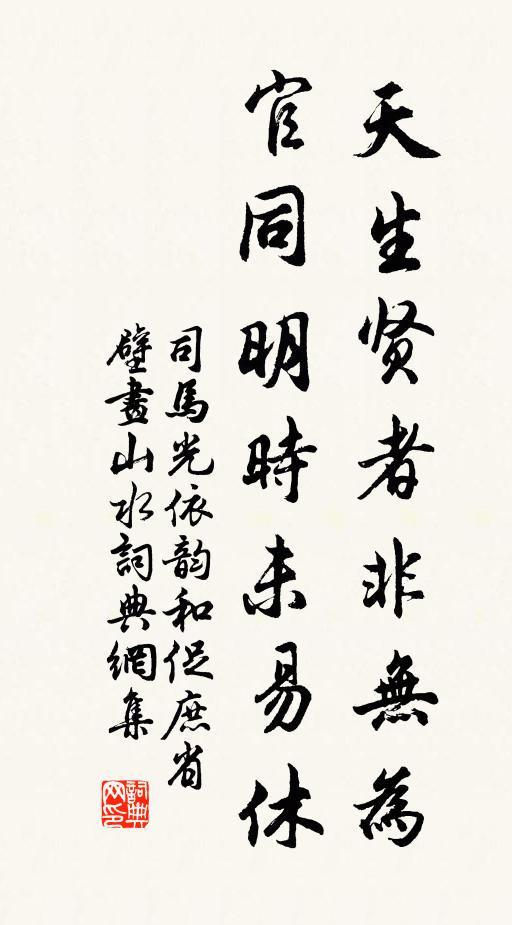 天生贤者非無為
官同明時未易休
司馬光依韵和促庶省
壁畫山水詞典網集
詞典网印